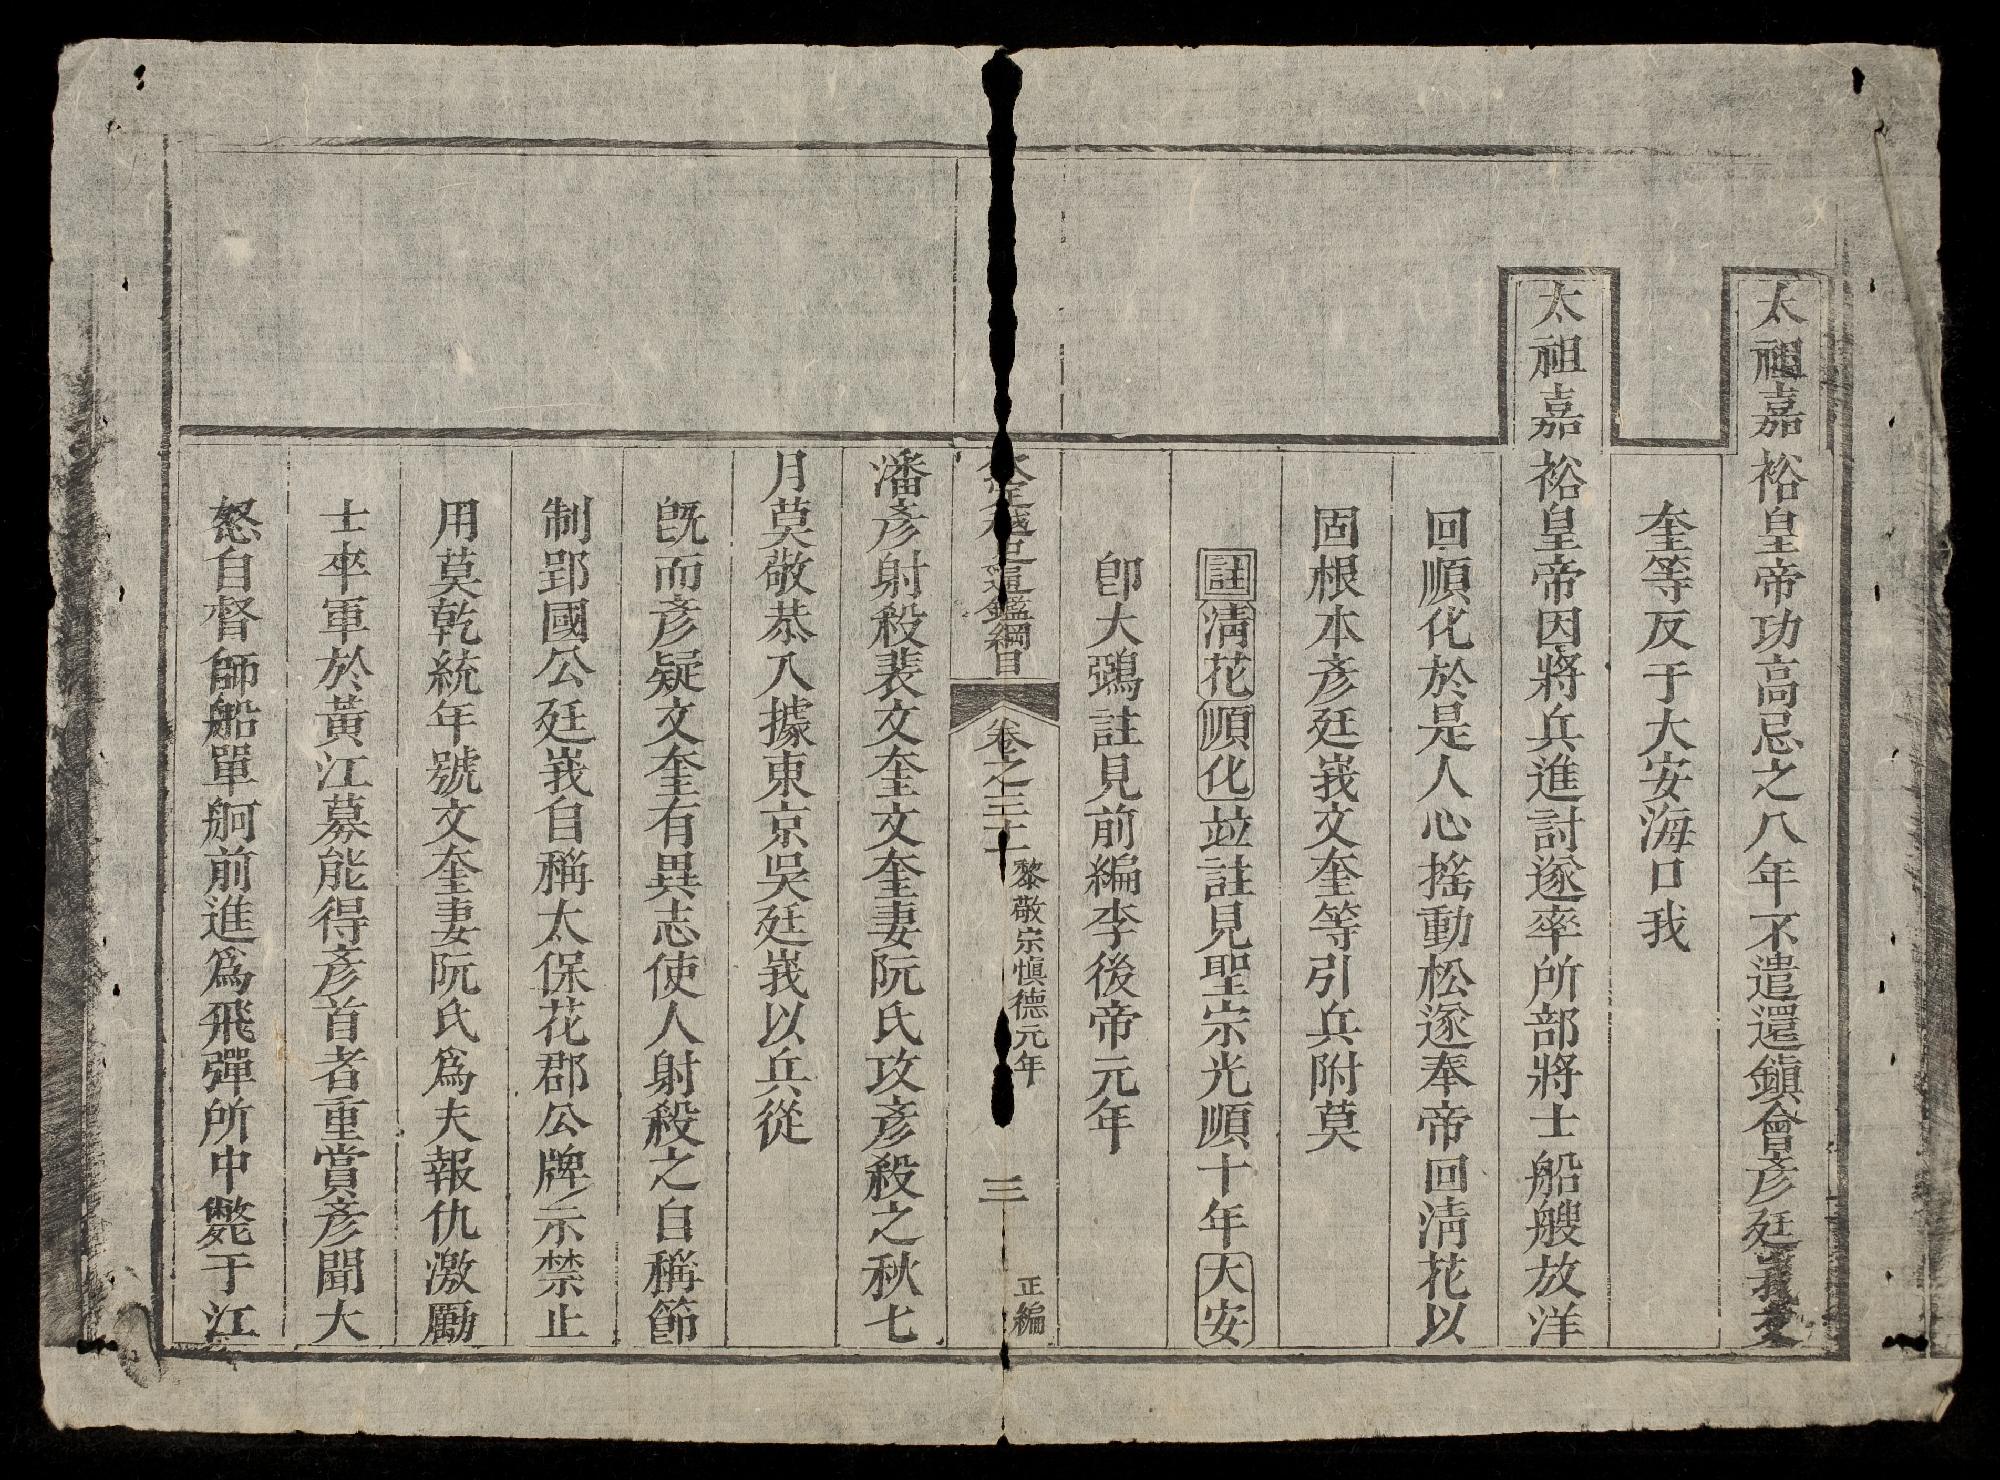 太祖嘉裕皇帝功高忌之八年不遣還鎮會彥廷峩文
奎等反于大安海口我
太祖嘉裕皇帝因將兵進討遂率所部將士船艘放洋
回順化於是人心搖動松遂奉帝回清花以
固根本彥廷峩文奎等引兵附莫
註清花順化並註見聖宗光順十年大安
卽大鵶註見前編李後帝元年
欽定越史通鑑綱目 卷之三十 黎敬宗愼德元年 三 正編
潘彥射殺裴文奎文奎妻阮氏攻彥殺之秋七
月莫敬恭入據東京吳廷峩以兵從
旣而彥疑文奎有異志使人射殺之自稱節
制郢國公廷峩自稱太保花郡公牌示禁止
用莫乾統年號文奎妻阮氏爲夫報仇激勵
士卒軍於黃江募能得彥首者重賞彥聞大
怒自督師船單舸前進爲飛彈所中斃于江